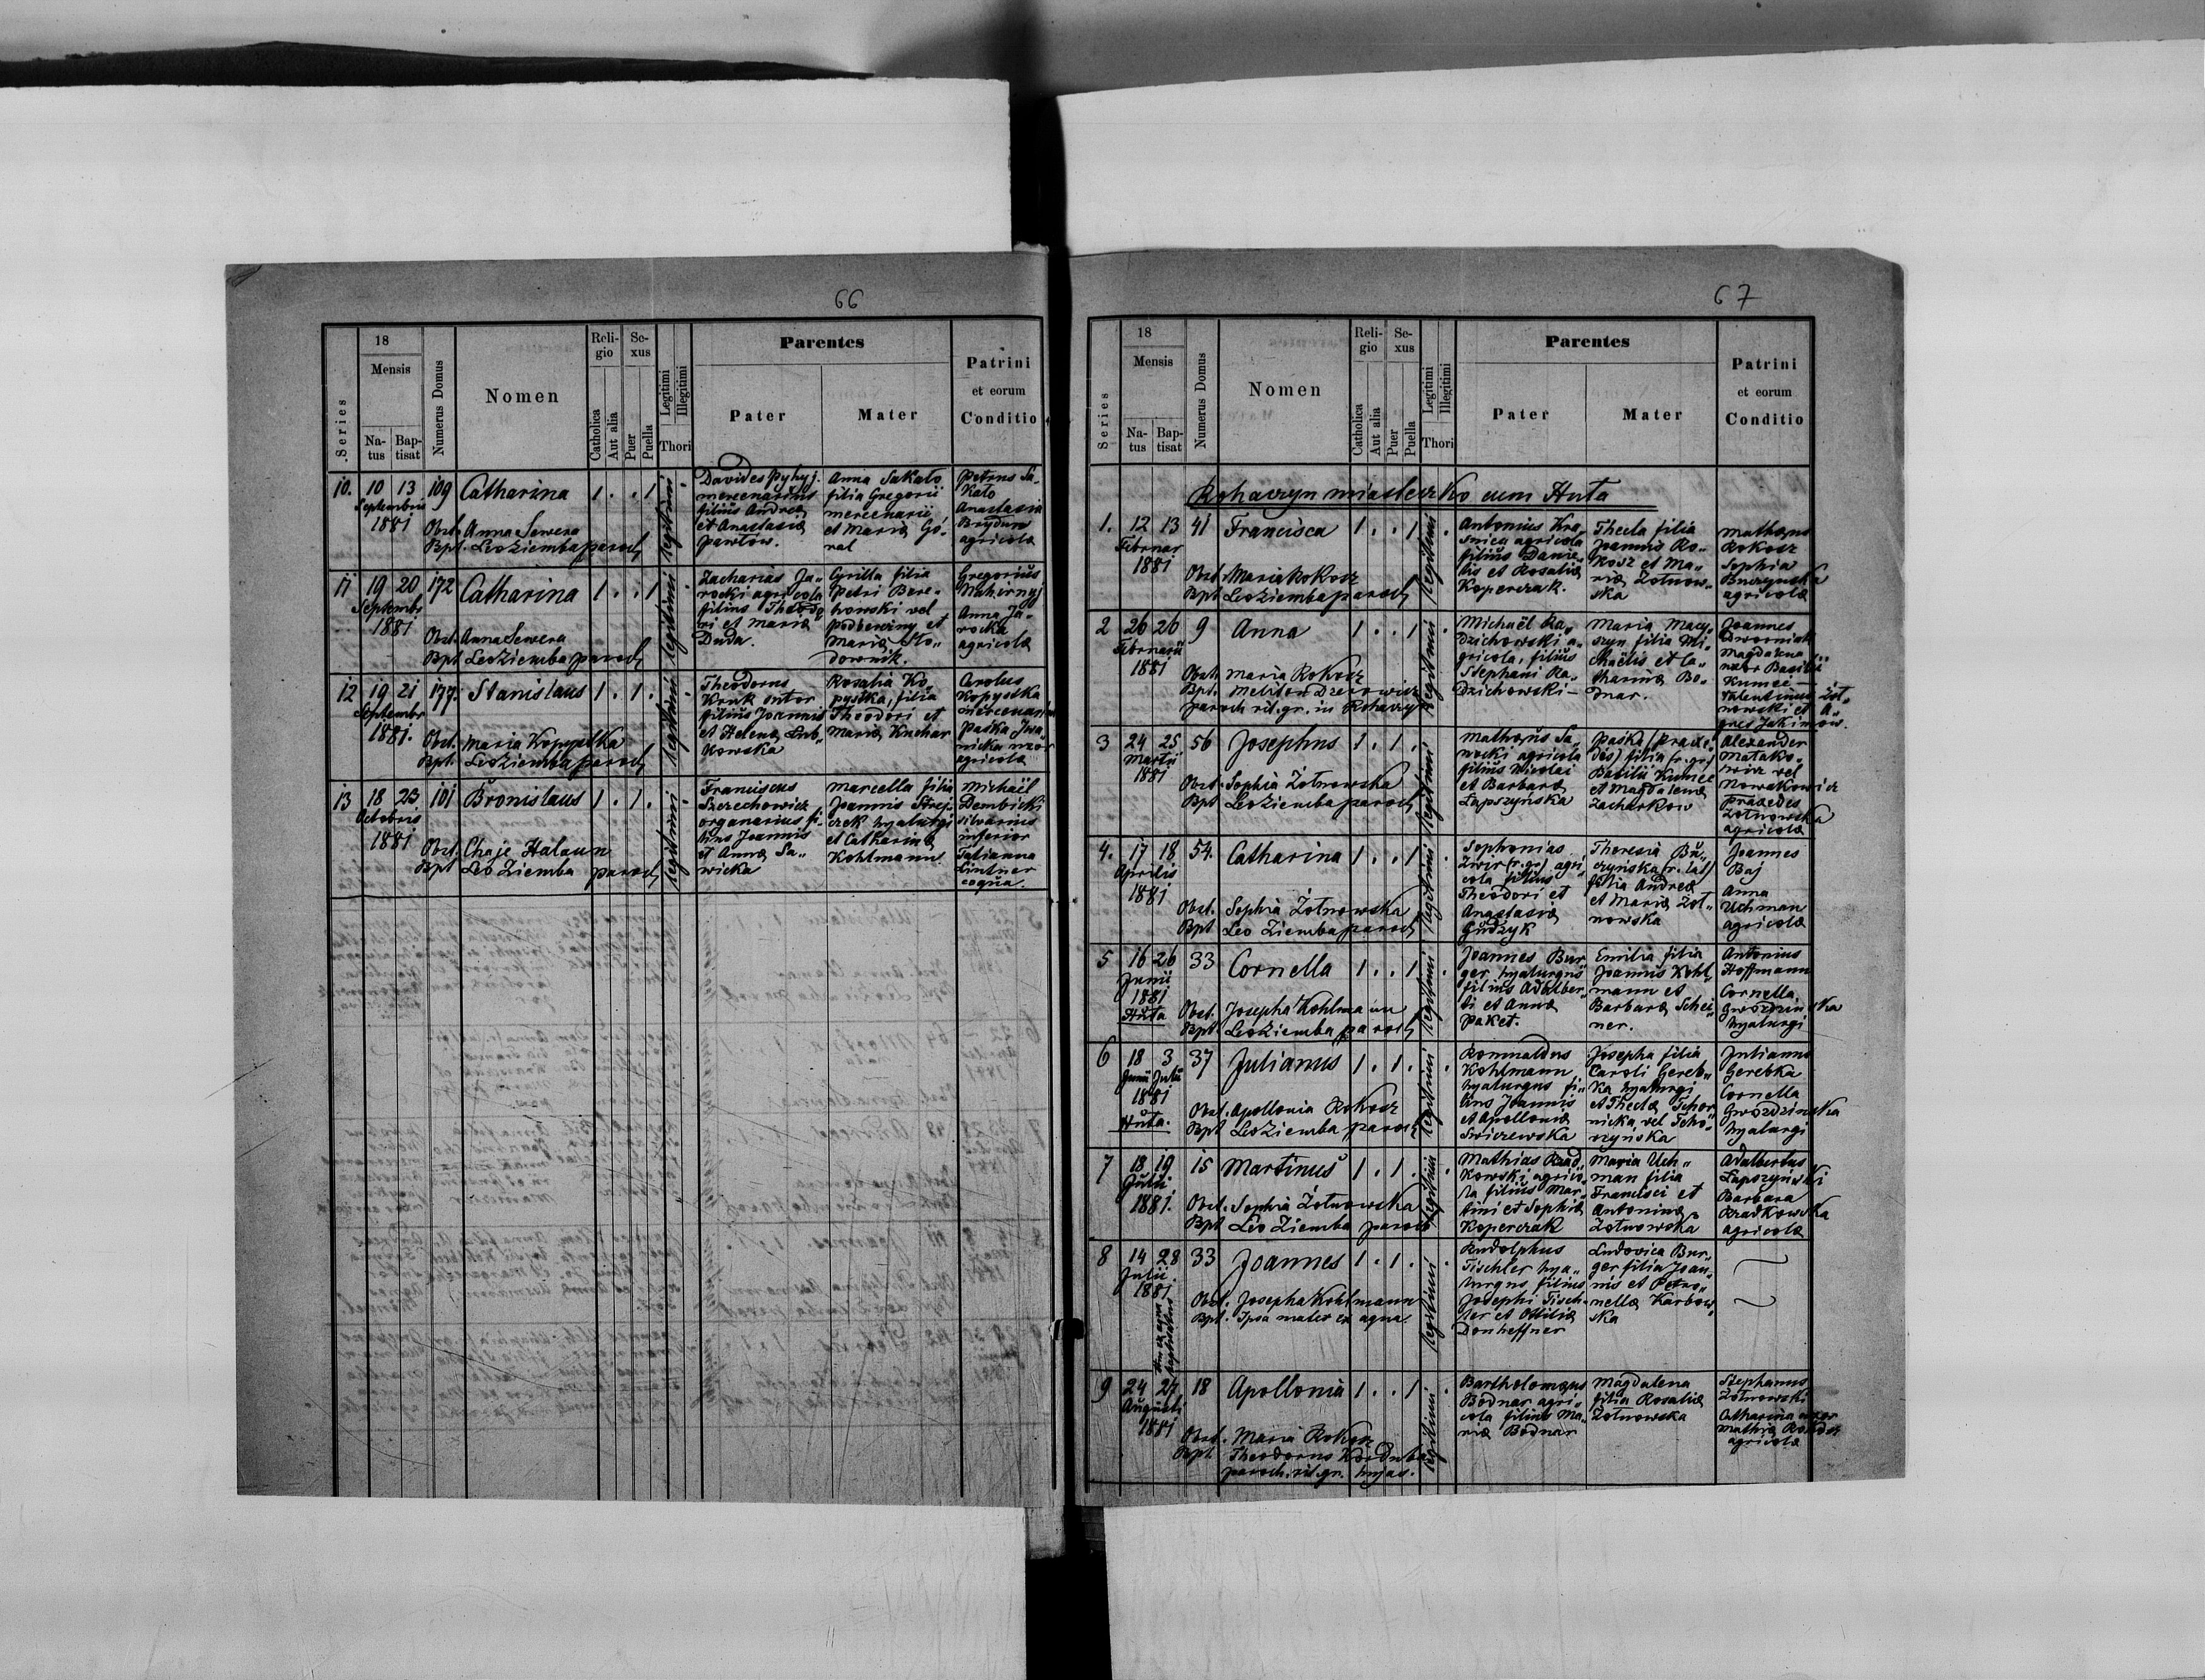 66
.Series
18
Mensis
Na-
tus
Bap-
tisat
Numerus Domus
Nomen
Reli-
gio
Catholica
Aut alia
Se-
xus
Puer
Puella
Legitimi
Illegitimi
Thori
Parentes
Pater
Mater
Patrini
et eorum
Conditio
10. 10 13 109 Catharina 1 . . 1
Septembris
1881
Obst. Anna Sewera
Bpt. Leo Ziemba paroch
legitimi
Davides Pyhyj.
mercenarius
filius Andreæ
et Anastasiæ
Pawłów.
Anna Sakato
filia Gregorii
mercenarii
et Mariæ Gó„
ral
Petrus Sa„
Kato
Anastasia
Brydun
agricolæ
11 19 20 172 Catharina 1 . . 1
Septembr
1881
Obst. Anna Sewera
Bpt Leo Ziemba paroch
legitimi
Zacharias Ja„
rocki agricola
filius Theodo
ri et Mariæ
Duda.
Cyrilla filia
Petri Bere„
howski vel
et
Mariæ Sto„
downik.
Gregorius
Anna Ja„
rocka
agricolæ
12 19 21 177. Stanislaus 1 . 1 .
Septembr
1881.
Obst. Maria Kopystka
Bpt. Leo Ziemba paroch
legitimi
Theodorus
Kruk sutor
filius Joannis
et Helenæ Lub„
kowska
Rosalia Ko„
pystka, filia
Theodori et
Mariæ Kuchar
Carolus
Kopystka
mercenarius
Paśka Iwa„
nicka uxor
agricolæ
13 18 23 101 Bronislaus 1 . 1 .
Octobris
1881
Obst. Chaje Halaun
Bpt Leo Ziemba paroch
legitimi
Franciscus
Szczechowicz
organarius fi„
lius Joannis
et Annæ Sa„
wicka
Marcella filia
Joannis Strej„
czek hyalurgi
et Catharinæ
Kohlmann
Michaël
Dembicki
silvarius
inferior
Tatianna
Lintner
coqua.
67
Series
18
Mensis
Na-
tus
Bap-
tisat
Numerus Domus
Nomen
Reli-
gio
Catholica
Aut alia
Se-
xus
Puer
Puella
Legitimi
Illegitimi
Thori
Parentes
Pater
Mater
Patrini
et eorum
Conditio
Rohaczyn miasteczko cum Huta
1. 12 13 41 Francisca 1 . . 1 .
Februar
1881
Obst. Maria Rokosz
Bpt Leo Ziemba paroch
legitimi
Antonius Kra„
snica agricola
filius Danie„
lis et Rosaliæ
Koperczak.
Thecla filia
Joannis Ro„
kosz et Ma„
riæ Żołnow„
ska
Mathæus
Rokosz
Sophia
Buczynska
agricolæ
2 26 26 9 Anna 1 . . 1 .
Februarii
1881
Obst. Maria Rokosz
Bpt. Meliton
paroch rit. gr. in Rohaczyn
legitimi
Michaël Ra„
dzichowski a„
gricola, filius
Stephani Ra„
dzichowski—
Maria Macy„
szyn filia Mi„
chaëlis et Ca„
tharinæ Bo„
dnar.
Joannes
Dworniak
Magdalena
uxor Basilii
Kumec —
Valentinus Żoł„
nowski et A„
gnes Jakimow.
3 24 25 56 Josephus 1 . 1 . .
Martii
1881
Obst. Sophia Żołnowska
Bpt Leo Ziemba paroch
legitimi
Mathæus Sa„
wocki agricola
filius Nicolai
et Barbaræ
Łapszyńska
Paśka (Praxe„
dis) filia (r. gr)
Basilii Kumec
et Magdalenæ
Zacharkow
Alexander
Matako„
wicz vel
Nowakowicz
Praxedes
Żołnowska
agricolæ
4. 17 18 54. Catharina 1 . . 1 .
Aprilis
1881
Obst. Sophia Żołnowska
Bpt Leo Ziemba paroch
legitimi
Sophonias
Żwir (r. gr) agri
cola filius
Theodori et
Anastasiæ
Gudzyk
Theresia Bu„
czyńska (r. lat)
filia Andreæ
et Mariæ Żoł„
nowska
Joannes
Baj
Anna
Uchman
agricolæ
5 16 26 33 Cornella 1 . . 1 .
Junii
1881
Huta
Obst. Josepha Kohlmann
Bpt Leo Ziemba paroch
legitimi
Joannes Bur„
ger, hyalurgus
filius Adalber„
ti et Annæ
Paket.
Emilia filia
Joannis Kohl„
mann et
Barbaræ Schei„
ner.
Antonius
Hoffmann
Cornella
Gwoździnska
hyalurgi
6 18 3 37 Julianus 1 . 1 . .
Junii Julii
1881
Huta.
Obst. Apollonia Rokosz
Bpt Leo Ziemba paroch
legitimi
Romualdus
Kohlmann
hyalurgus fi„
lius Joannis
et Apolloniæ
Swiczewska
Josepha filia
Caroli Gereb„
ka hyalurgi
et Theclæ Tchor„
nicka, vel Tcho„
rzyńska
Julianus
Gerebka
Cornella
Gwoździnska
hyalurgi
7 18 19 15 Martinus 1 . 1 . .
Julii
1881.
Obst. Sophia Żołnowska
Bpt Leo Ziemba paroch
legitimi
Mathias Rzad„
kowski, agrico„
la filius Mar„
tini et Sophiæ
Koperczak
Maria Uch„
man filia
Francisci et
Antoninæ
Żołnowska
Adalbertus
Łapszyński
Barbara
Rzadkowska
agricolæ
8 14 28 33 Joannes 1 . 1 . .
Julii
1881
ex aqua
baptisatus
Obst. Josepha Kohlmann
Bpt. Ipsa mater ex aqua
legitimi
Rudolphus
Tischler hya„
lurgus, filius
Josephi Tisch„
ler et Ottiliæ
Donheffner
Ludovica Bur„
ger filia Joan„
nis et Petro„
nellæ Karbow„
ska
9 24 27 18 Apollonia 1 . . 1 .
Augusti
1881
Obst. Maria Rokosz
Bpt. Theodorus Korduba
paroch. rit. gr. hujas.
legitimi
Bartholomæus
Bodnar agri„
cola filius Ma„
riæ Bodnar
Magdalena
filia Rosaliæ
Żołnowska
Stephanus
Żołnowski
Catharina uxor
Mathiæ Rokosz
agricolæ